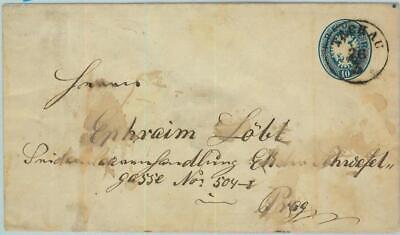 10
Herrn
Ephraim Löbl
Seidenwaarenhandlung
gasse No: 504-I
Prag